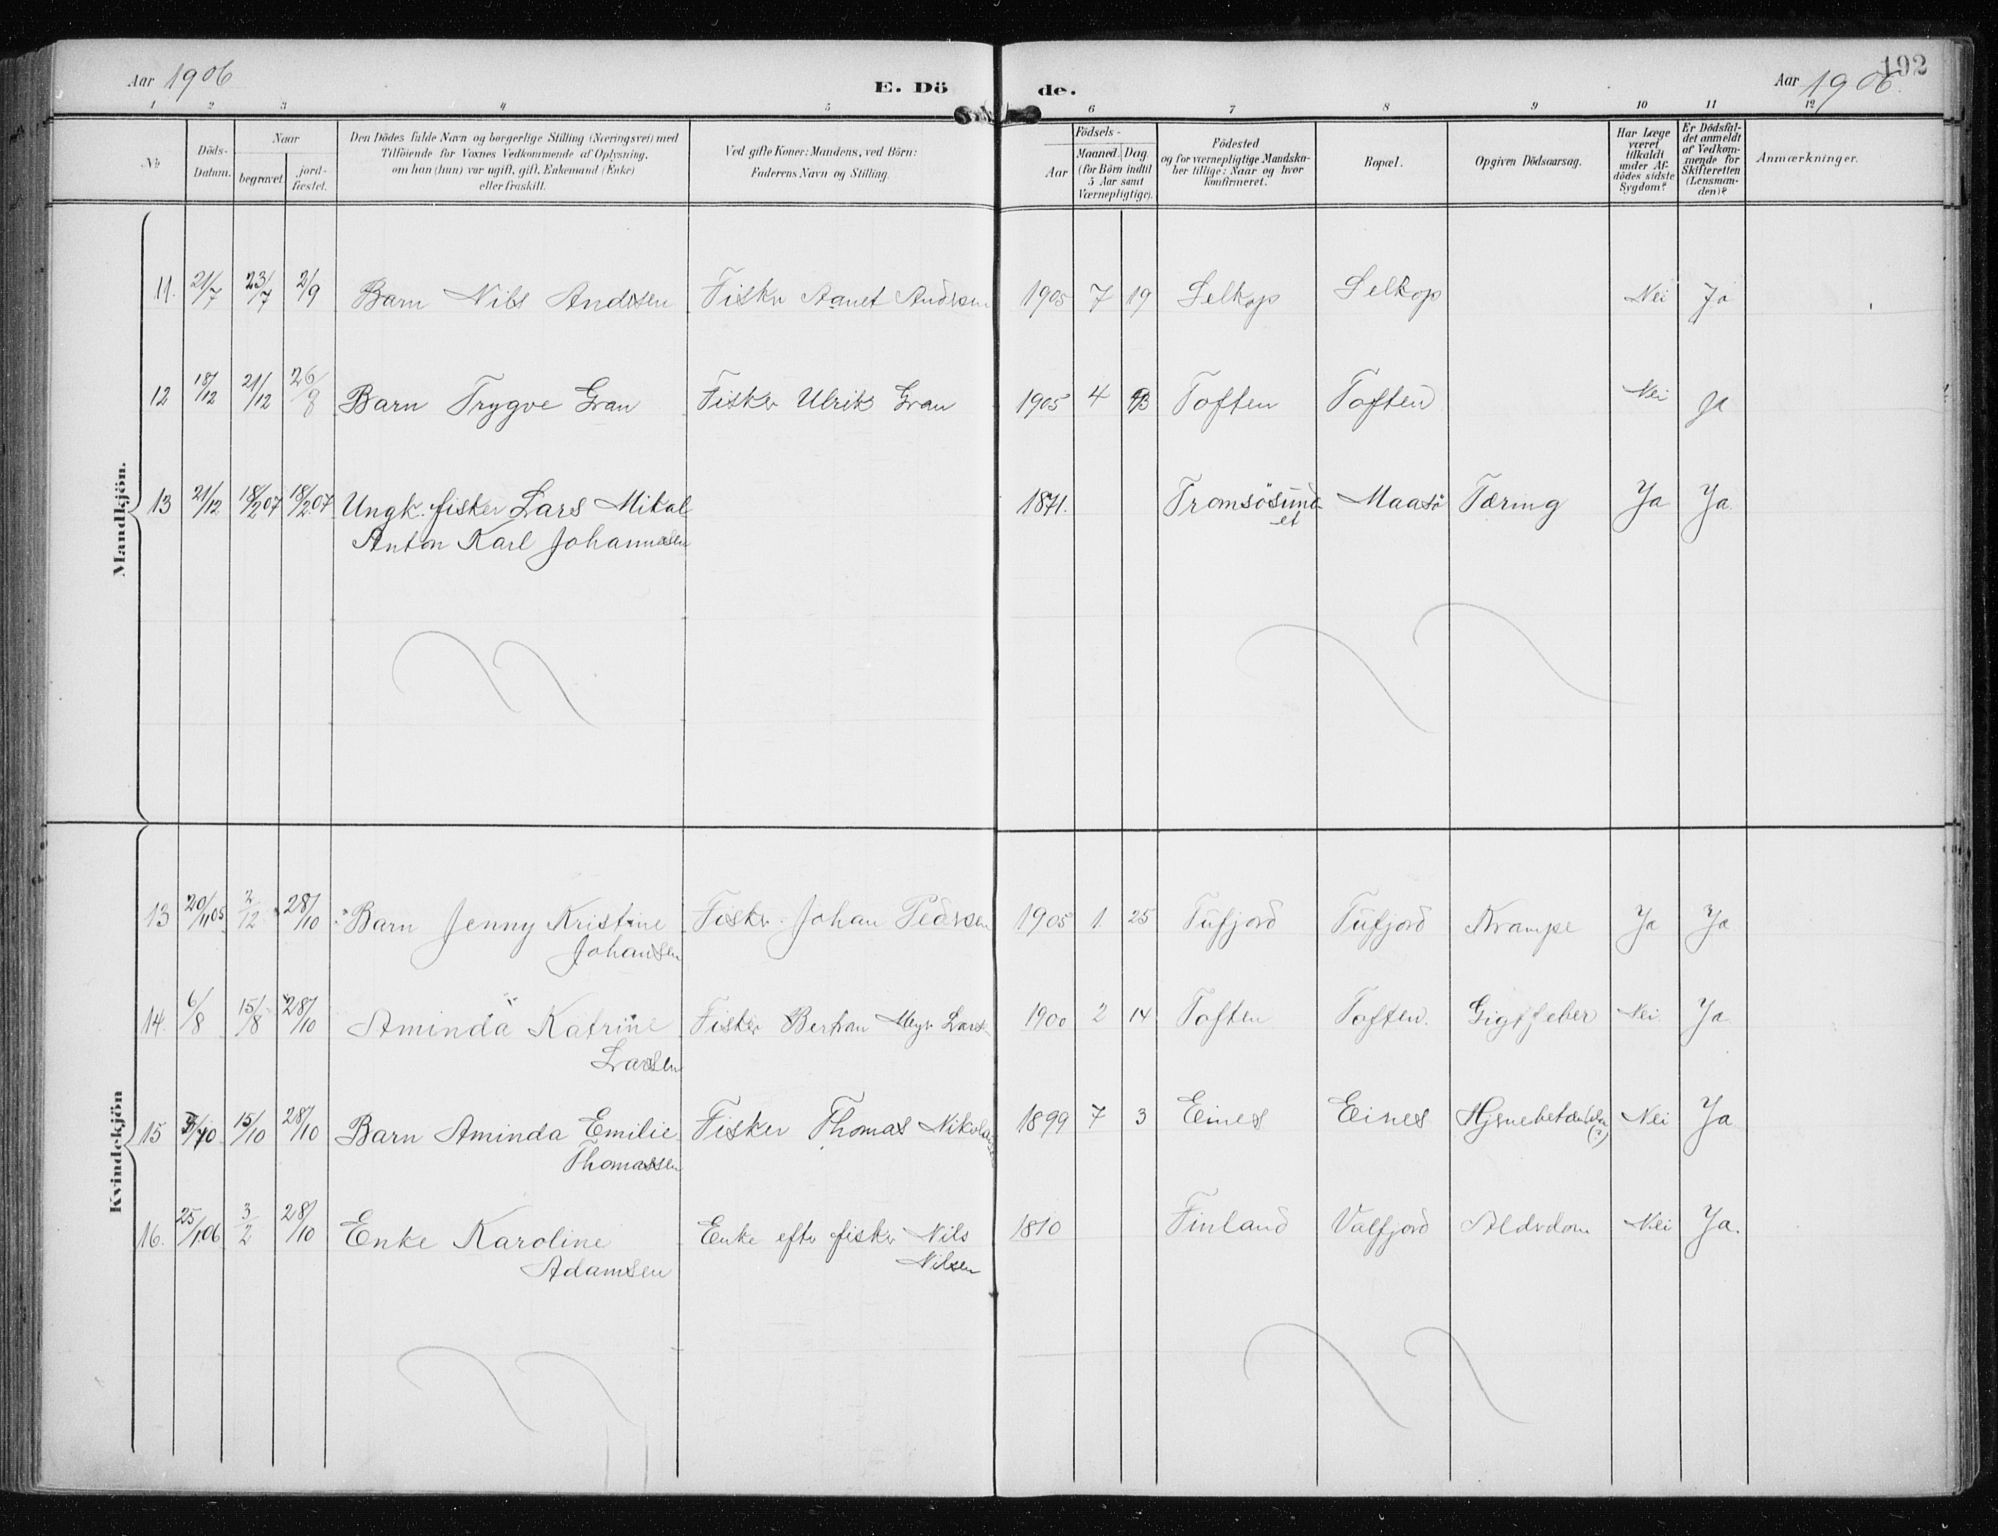 Aar 1906 E. Dö de. Aar 1906. 192
1 2 3 4 5 6 7 8 9 10 11 12
No Döds-Datum. Naar begravet. jordfæstet. Den Dödes fulde Navn og borgerlige Stilling (Næringsvei) med Tilföiende for Voxnes Vedkommende af Oplysning, om han (hun) var ugift, gift, Enkemand (Enke) eller fraskilt. Ved gifte Koner: Mandens, ved Börn: Faderens Navn og Stilling. Födsels- Aar Maaned. Dag (for Börn indtil 5 Aar samt Værnepligtige). Födested og for værnepligtige Mandskaber tillige: Naar og hvor konfirmeret. Bopæl. Opgiven Dödsaarsag. Har Læge været tilkaldt under Afdödes sidste Sygdom? Er Dödsfaldet anmeldt af Vedkommende for Skifteretten (Lensmanden)? Anmærkninger.
Mandkjön.
11. 21/7 23/7 2/9 Barn Nils Andersen Fisker Andersen 1905 7 19 Selkop Selkop Nei Ja
12 18/12 21/12 26/8 Barn Trygve Gran Fisker Ulrik Gran 1905 4 Toften Toften Nei Ja
13 21/12 18/2 07 18/2 07 Ungk. fisker Lars Mikal 1871. Tromsösund- Maasö Tæring Ja Ja.
Anton Karl Johannesen et
Kvindekjön
13 20/11 05 2/12 28/10 Barn Jenny Kristine Fisker Johan Pedersen 1905 1. 25 Tufjord Tufjord Krampe Ja Ja
Johansen
14. 6/8 15/8 28/10 Aminda Katrine Fisker Bertran Meyer 1900 2 14 Toften Toften. Gigtfeber Nei. Ja.
Larsen
15 15/10 28/10 Barn Aminda Emilie Fisker Thomas 1899 7 3 Eines Eines Nei Ja
Thomassen (?)
16. 25/1 06 3/2 28/10 Enke Karoline Enke efter fisker Nils 1810 Finland Valfjord Alderdom Nei Ja.
Adamsen Nilsen